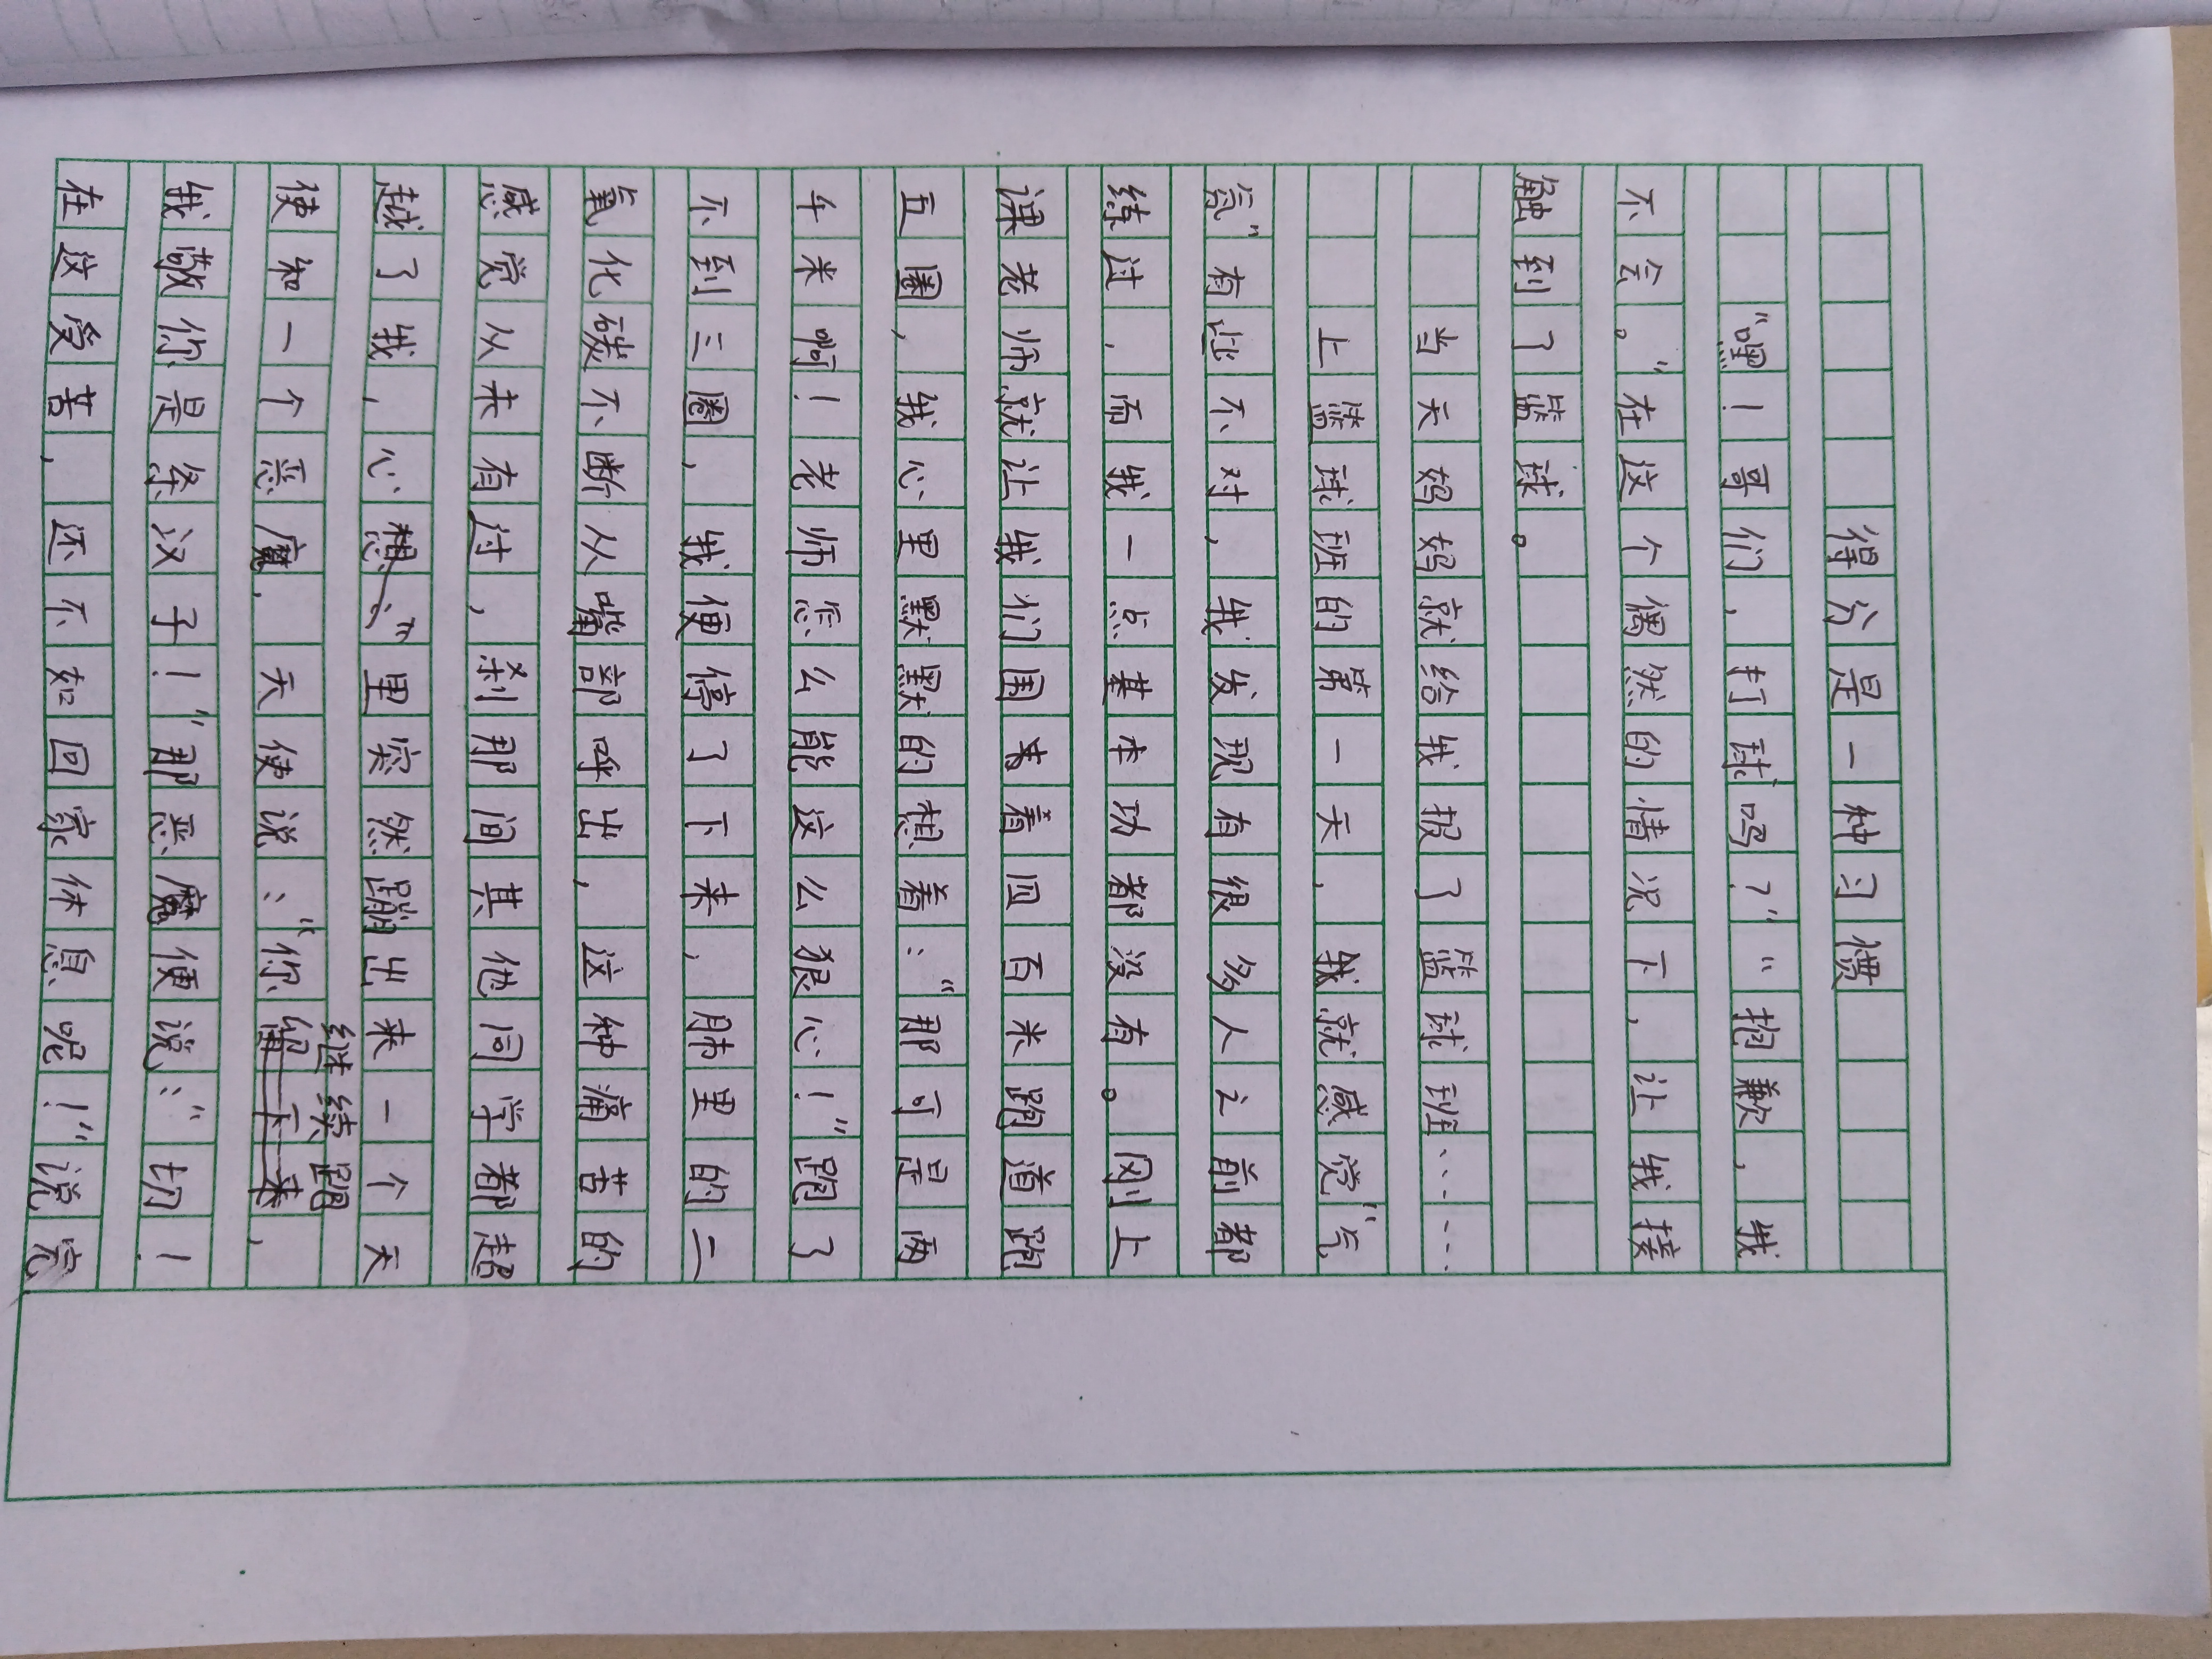 得分是一种习惯
“嘿！哥们，打球吗？”“抱歉，我
不会。”在这个偶然的情况下，让我接
触到了篮球。
当天妈妈就给我报了篮球班……
上篮球班的第一天，我就感觉“气
氛”有些不对，我发现有很多人之前都
练过，而我一点基本功都没有。刚上
课老师就让我们围着四百米跑道跑
五圈，我心里默默的想着：“那可是两
千米啊！老师怎么能这么狠心！”跑了
不到三圈，我便停了下来，肺里的二
氧化碳不断从嘴部呼出，这种痛苦的
感觉从未有过，刹那间其他同学都超
越了我，心想：“里突然蹦出来一个天
继续跑
使和一个恶魔，天使说：“你留下来，
我敬你是条汉子！”那恶魔便说：“切！
在这受苦，还不如回家休息呢！”说完